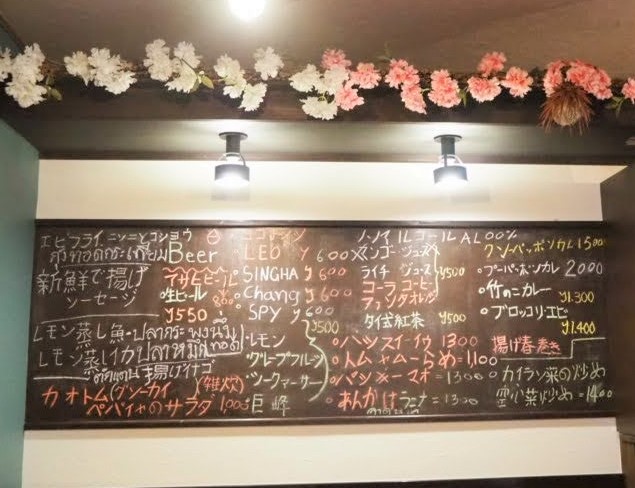 エビフライ ニンニクコショウ
กุ้งทอดกระเทียม
新鮮で揚げ
ソーセージ
レモン蒸し魚・ปลากระพงนึ่ง
レモン蒸しイカ ปลาหมึกทอด
揚げイナゴ
カオトム(クンーカイ (雑炊)
パパイヤのサラダ 1,000
Beer
アサヒビール
生ビール
¥550
LEO ¥600
SINGHA ¥600
Chang ¥600
SPY ¥600
¥500
・レモン
・グレープフルーツ
・巨峰
ノンアルコール AL 00%
マンゴージュース
ライチ ジュース ¥500
コーラ コーヒー
ファンタオレンジ
タイ式紅茶 ¥500
1300
・トムヤムラーメン=1,100
=1300
・あんかけ =1300
1500
・プーパッポンカレ 2000
・竹の二カレー
¥1.300
・ブロッコリーエビ
¥1.400
揚げ春巻き
・カイラン菜の炒め
空心菜炒め=1400